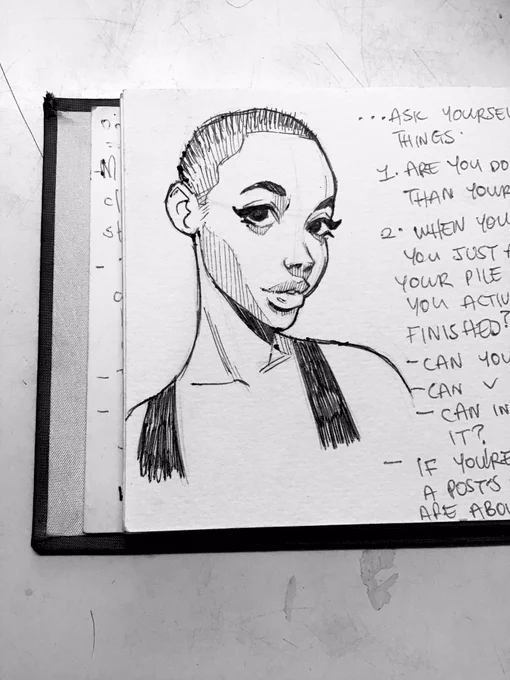 ...ASK YOURSEL
THINGS.
1. ARE YOU DO
THAN YOUR
2. WHEN YOU
YOU JUST
YOUR PILE
YOU ACTIV
FINISHED?
- CAN YOU
- CAN
- CAN IN
IT?
- IF YOU'RE
A POST'S
ARE ABOU